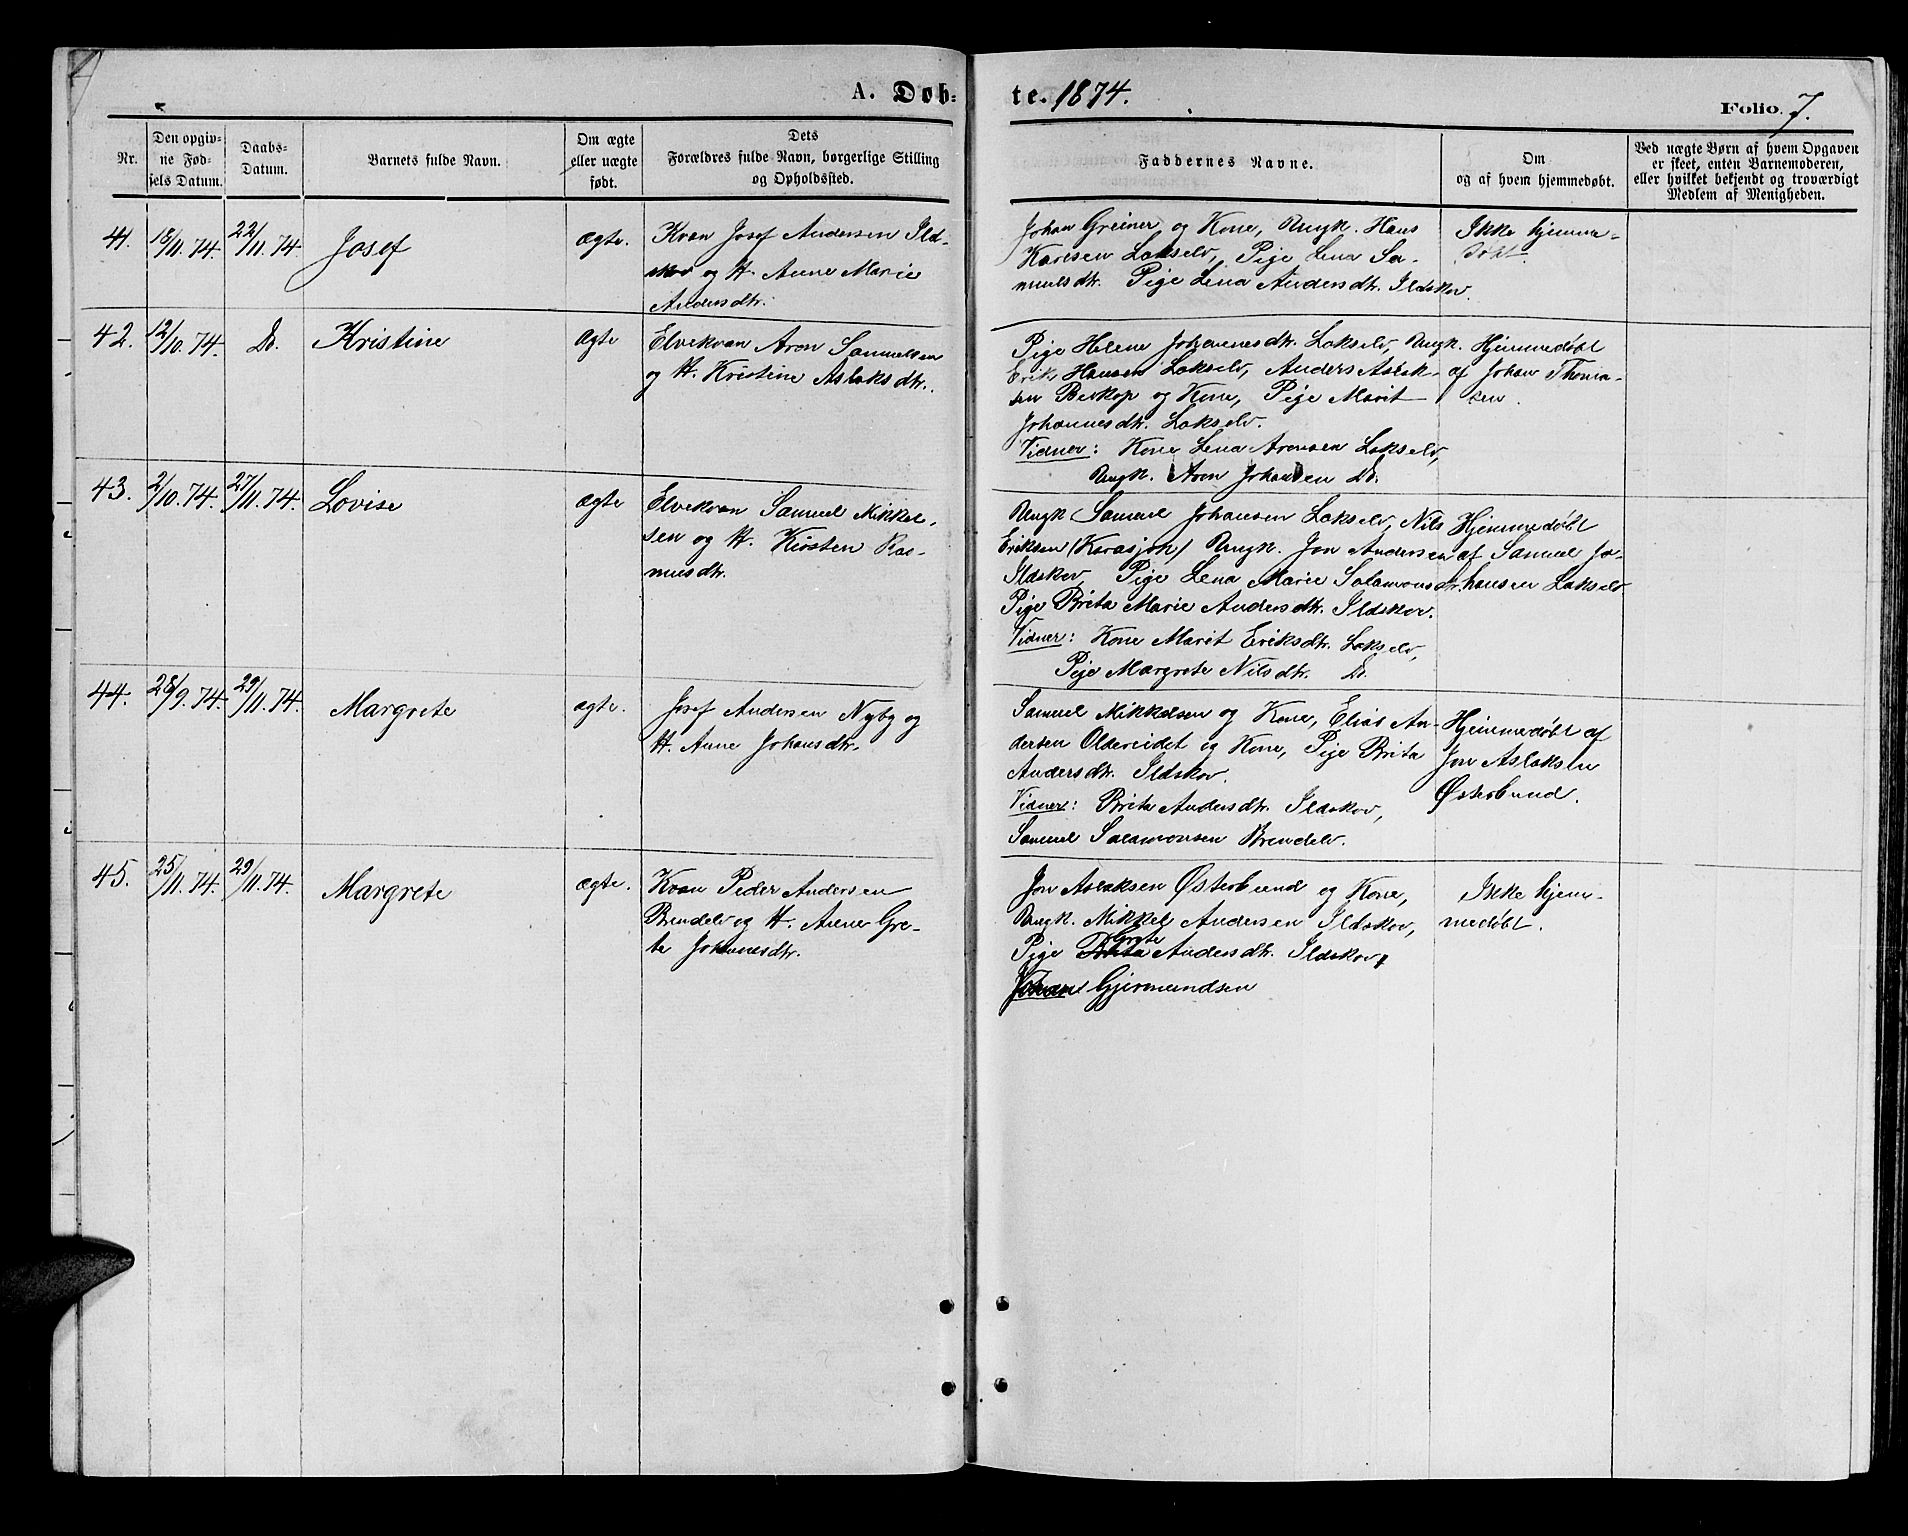 A. Døb-
te. 1874.
Folio. 7.
Nr.
Den opgiv-
ne Fød-
sels Datum.
Daabs-
Datum.
Barnets fulde Navn.
Om ægte
eller uægte
født.
Dets
Forældres fulde Navn, borgerlige Stilling
og Opholdssted.
Faddernes Navne.
Om
og af hvem hjemmedøbt.
Ved uægte Børn af hvem Opgaven
er skeet, enten Barnemoderen,
eller hvilket bekjendt og troværdigt
Medlem af Menigheden.
41. 18/11.74. 22/11.74. Josef
ægte.
Kvæn Josef Andersen Ild-
skov og H. Anne Marie
Andersdtr.
Johan Greiner og Kone, Ungk. Hans
Karlsen Lakselv, Pige Lena Sa-
muelsdtr. Pige Lena Andersdtr. Ildskov.
Ikke hjemme-
døbt.
42. 12/10.74. Do. Kristine
ægte
Elvekvæn Aron Samuelsen
og H. Kristine Aslaksdtr.
Pige Helene Johannesdtr. Lakselv, Ungk.
Erik Hansen Lakselv, Anders Aslak-
sen Berkop og Kone, Pige Marit
Johannesdtr. Lakselv.
Vidner: Kone Lena Aronsen Lakselv,
Ungk. Aron Johansen Do.
Hjemmedøbt
af Johan Thoma-
sen.
43. 2/10.74. 27/11.74. Lovise
ægte
Elvekvæn Samuel Mikkel-
sen og H. Kirsten Ras-
musdtr.
Ungk Samuel Johansen Lakselv, Nils
Eriksen (Karasjok) Ungk. Jon Andersen
Ildskov, Pige Lena Marie Salamonsdtr.
Pige Brita Marie Andersdtr. Ildskov.
Vidner: Kone Marit Eriksdtr. Lakselv,
Pige Margrete Nilsdtr. Do.
Hjemmedøbt
af Samuel Jo-
hansen Lakselv
44. 28/9.74. 29/11.74. Margrete
ægte.
Josef Andersen Nyby og
H. Anne Johansdtr.
Samuel Mikkelsen og Kone, Elias An-
dersen Oldereidet og Kone, Pige Brita
Andersdtr. Ildskov.
Vidner: Brita Andersdtr. Ildskov,
Samuel Salamonsen Brendelv.
Hjemmedøbt af
Jon Aslaksen
Østerbund.
45. 25/11.74. 29/11.74. Margrete
ægte.
Kvæn Peder Andersen
Brendelv og H. Anne Gre-
te Johannesdtr.
Jon Aslaksen Østerbund og Kone,
Ungk. Mikkel Andersen Ildskov,
Pige Grete Andersdtr. Ildskov,
Johan Gjermundsen
Ikke hjem-
medøbt.